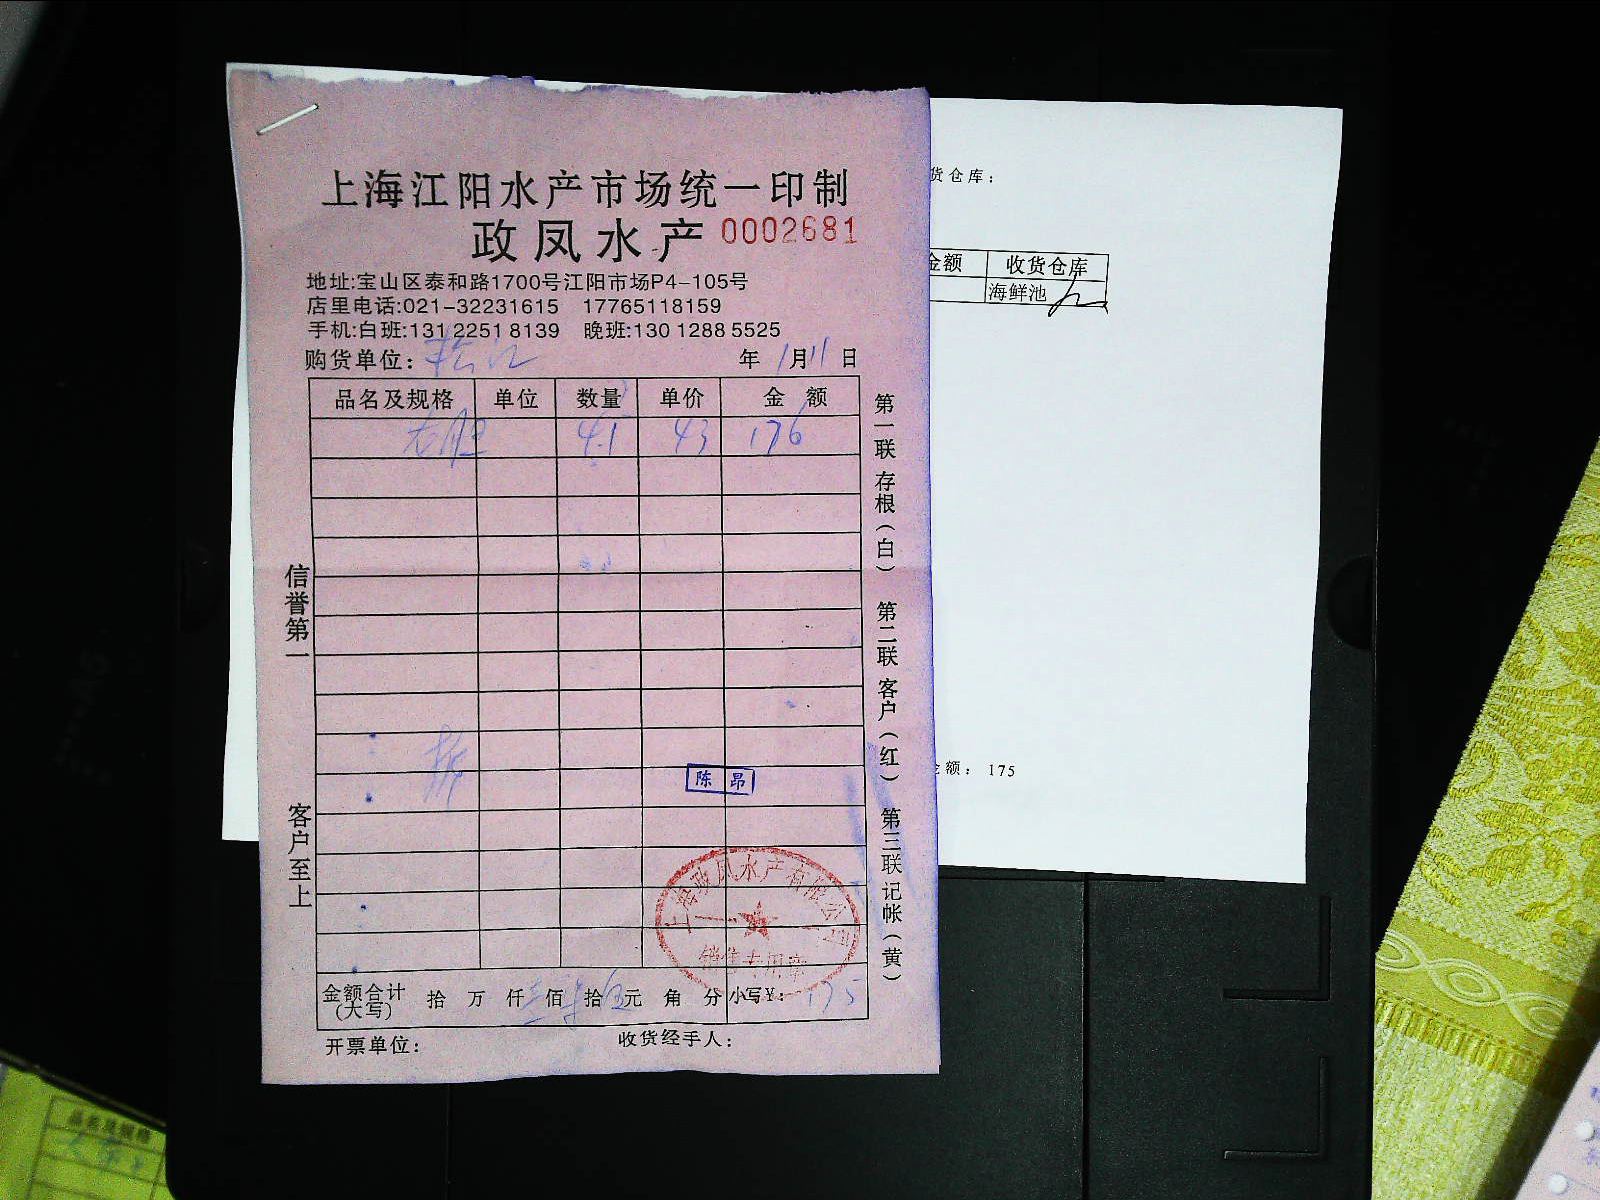 上海江阳水产市场统一印制
政凤水产 0002681
地址:宝山区泰和路1700号江阳市场P4-105号
店里电话:021-32231615 17765118159
手机:白班:131 2251 8139 晚班:130 1288 5525
购货单位: 松江 年 1月11日
品名及规格 单位 数量 单价 金额
4.1 43 176
陈昂
上海政凤水产有限公司
销售专用章
金额合计(大写) 拾 万 仟 佰 拾 元 角 分 小写¥: 175
开票单位: 收货经手人:
信誉第一
客户至上
第一联存根(白) 第二联客户(红) 第三联记帐(黄)
货仓库:
金额 收货仓库
海鲜池
额: 175
品名及规格